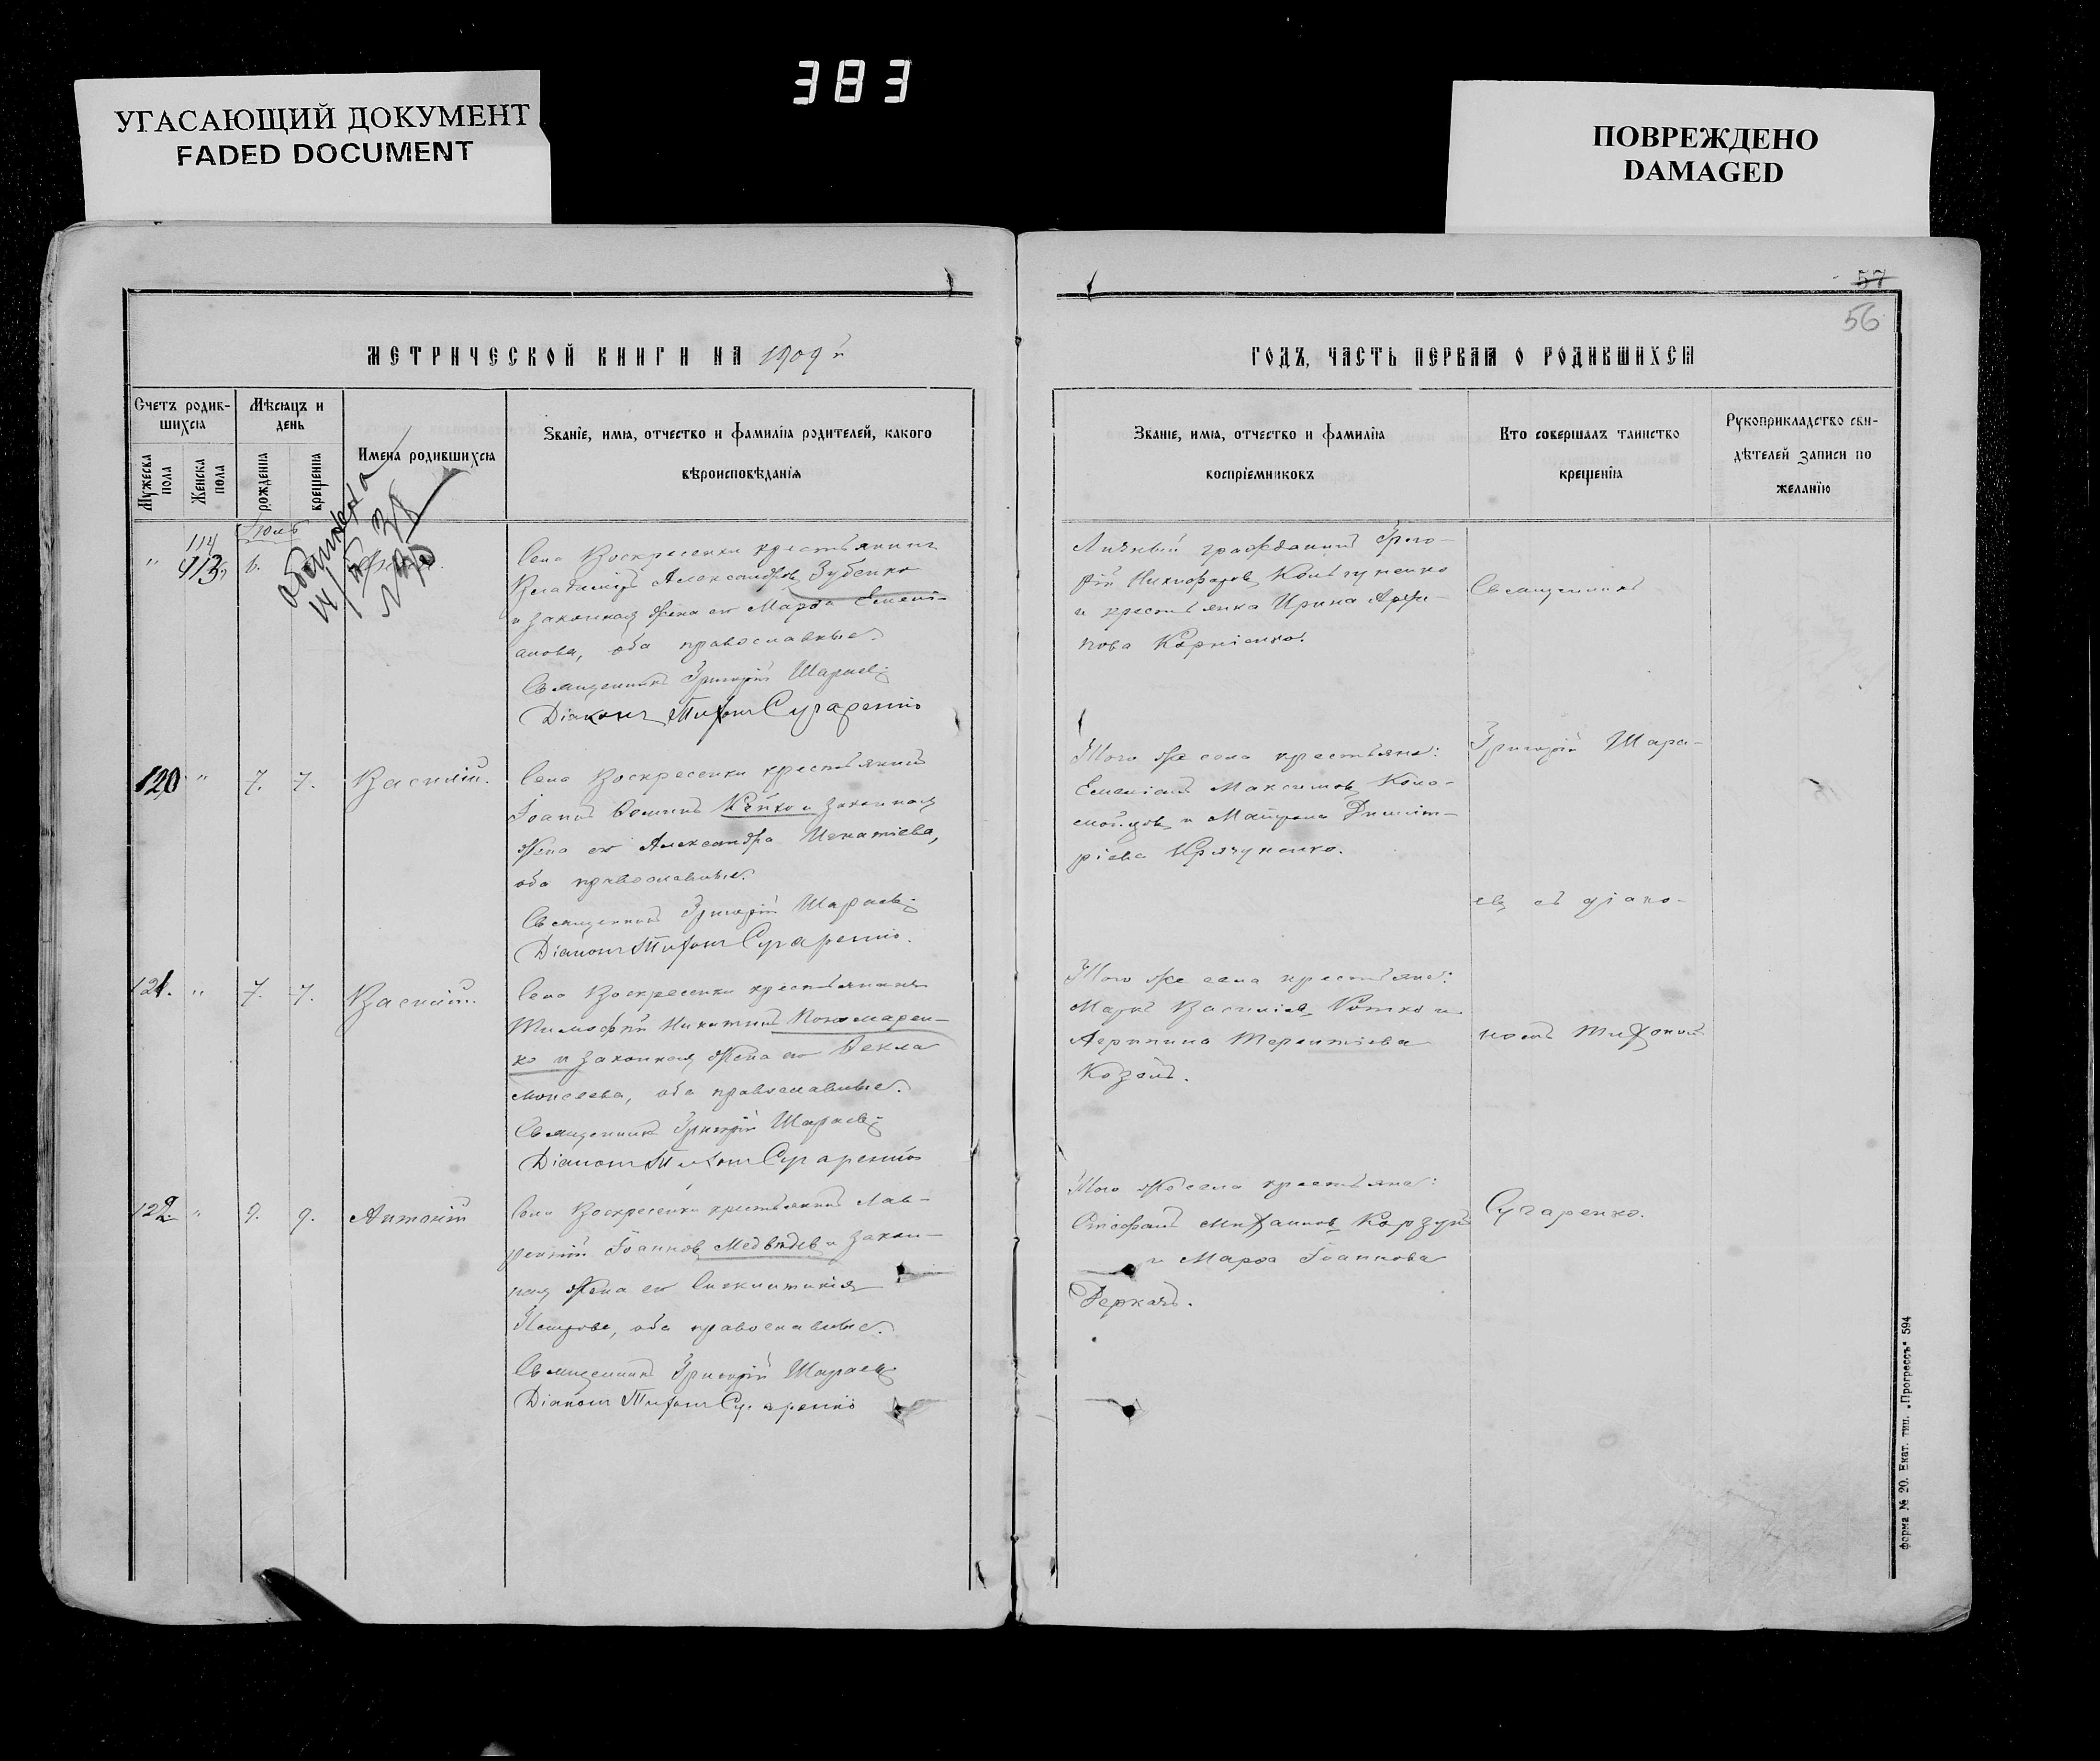 383
УГАСАЮЩИЙ ДОКУМЕНТ
FADED DOCUMENT
ПОВРЕЖДЕНО
DAMAGED
57
56
МЕТРИЧЕСКОЙ КНИГИ НА 1909й
Счетъ родив-
шихся
Мужеска
пола
Женска
пола
Мѣсяцъ и
день
рожденія
крещенія
Имена родившихся
Званіе, имя, отчество и фамилія родителей, какого
вѣроисповѣданія
114
113.
Іюль
6.
Села Воскресенки крестьянинъ
Владиміръ Александровъ Зубенко
и законная жена его Марфа Емелі-
анова, оба православные.
Священникъ Григорій Шараевъ
Діаконъ Тихонъ Сугаренко
120 " 7. 7. Василій.
Села Воскресенки крестьянинъ
Іоаннъ и законная
жена его Александра Игнатіева,
оба православные.
Священникъ Григорій Шараевъ
Діаконъ Тихонъ Сугаренко.
121. " 7. 7. Василій.
Села Воскресенки крестьянинъ
Тимофей Никитинъ Пономарен-
ко и законная жена его Фекла
Моисеева, оба православные.
Священникъ Григорій Шараевъ
Діаконъ Тихонъ Сугаренко
122. " 9. 9. Антоній
Села Воскресенки крестьянинъ Лав-
рентій Іоанновъ Медвѣдевъ и закон-
ная жена его Синклитикія
Петрова, оба православные.
Священникъ Григорій Шараевъ
Діаконъ Тихонъ Сугаренко
ГОДЪ, ЧАСТЬ ПЕРВАЯ О РОДИВШИХСЯ
Званіе, имя, отчество и фамилія
воспріемниковъ
Кто совершалъ таинство
крещенія
Рукоприкладство сви-
дѣтелей записи по
желанію
Личный гражданинъ Григо-
рій Никифоровъ
и крестьянка Ирина
Корніенко.
Того же села крестьяне:
Емеліанъ Максимовъ Коло-
мойцовъ и Матрона Димит-
ріева
Того же села крестьяне:
Маркъ Василіевъ и
Агриппина Терентіева
Козолъ.
Того же села крестьяне:
Стефанъ Михаиловъ Корзунъ
и Марфа Іоаннова
Деркачъ.
Священникъ
Григорій Шара-
евъ съ діако-
номъ Тихономъ
Сугаренко.
Форма № 20. Екат. тип. „Прогрессъ" 594